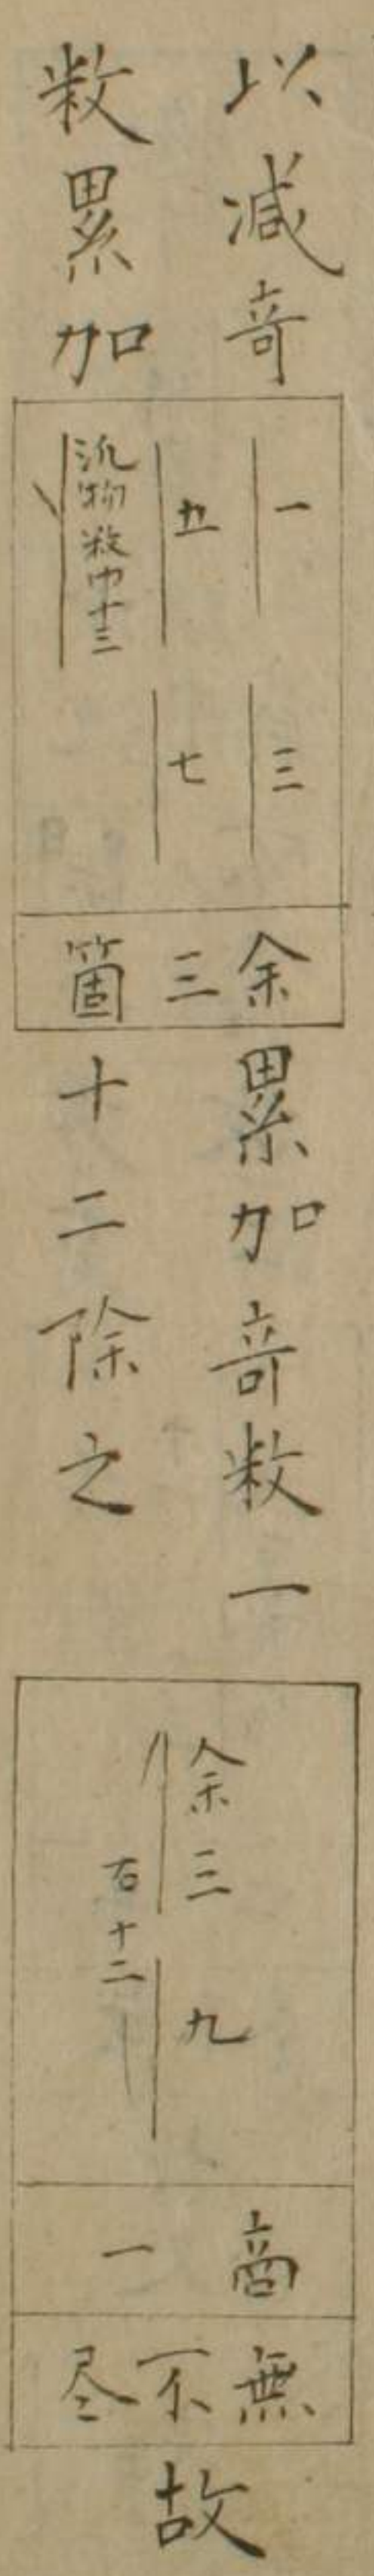 以減奇
数累加
一 三
五 七
汎物数内十三
余
三
箇
累加奇数一
十二除之
余三 九
右十二
商
一
無
不
尽
故